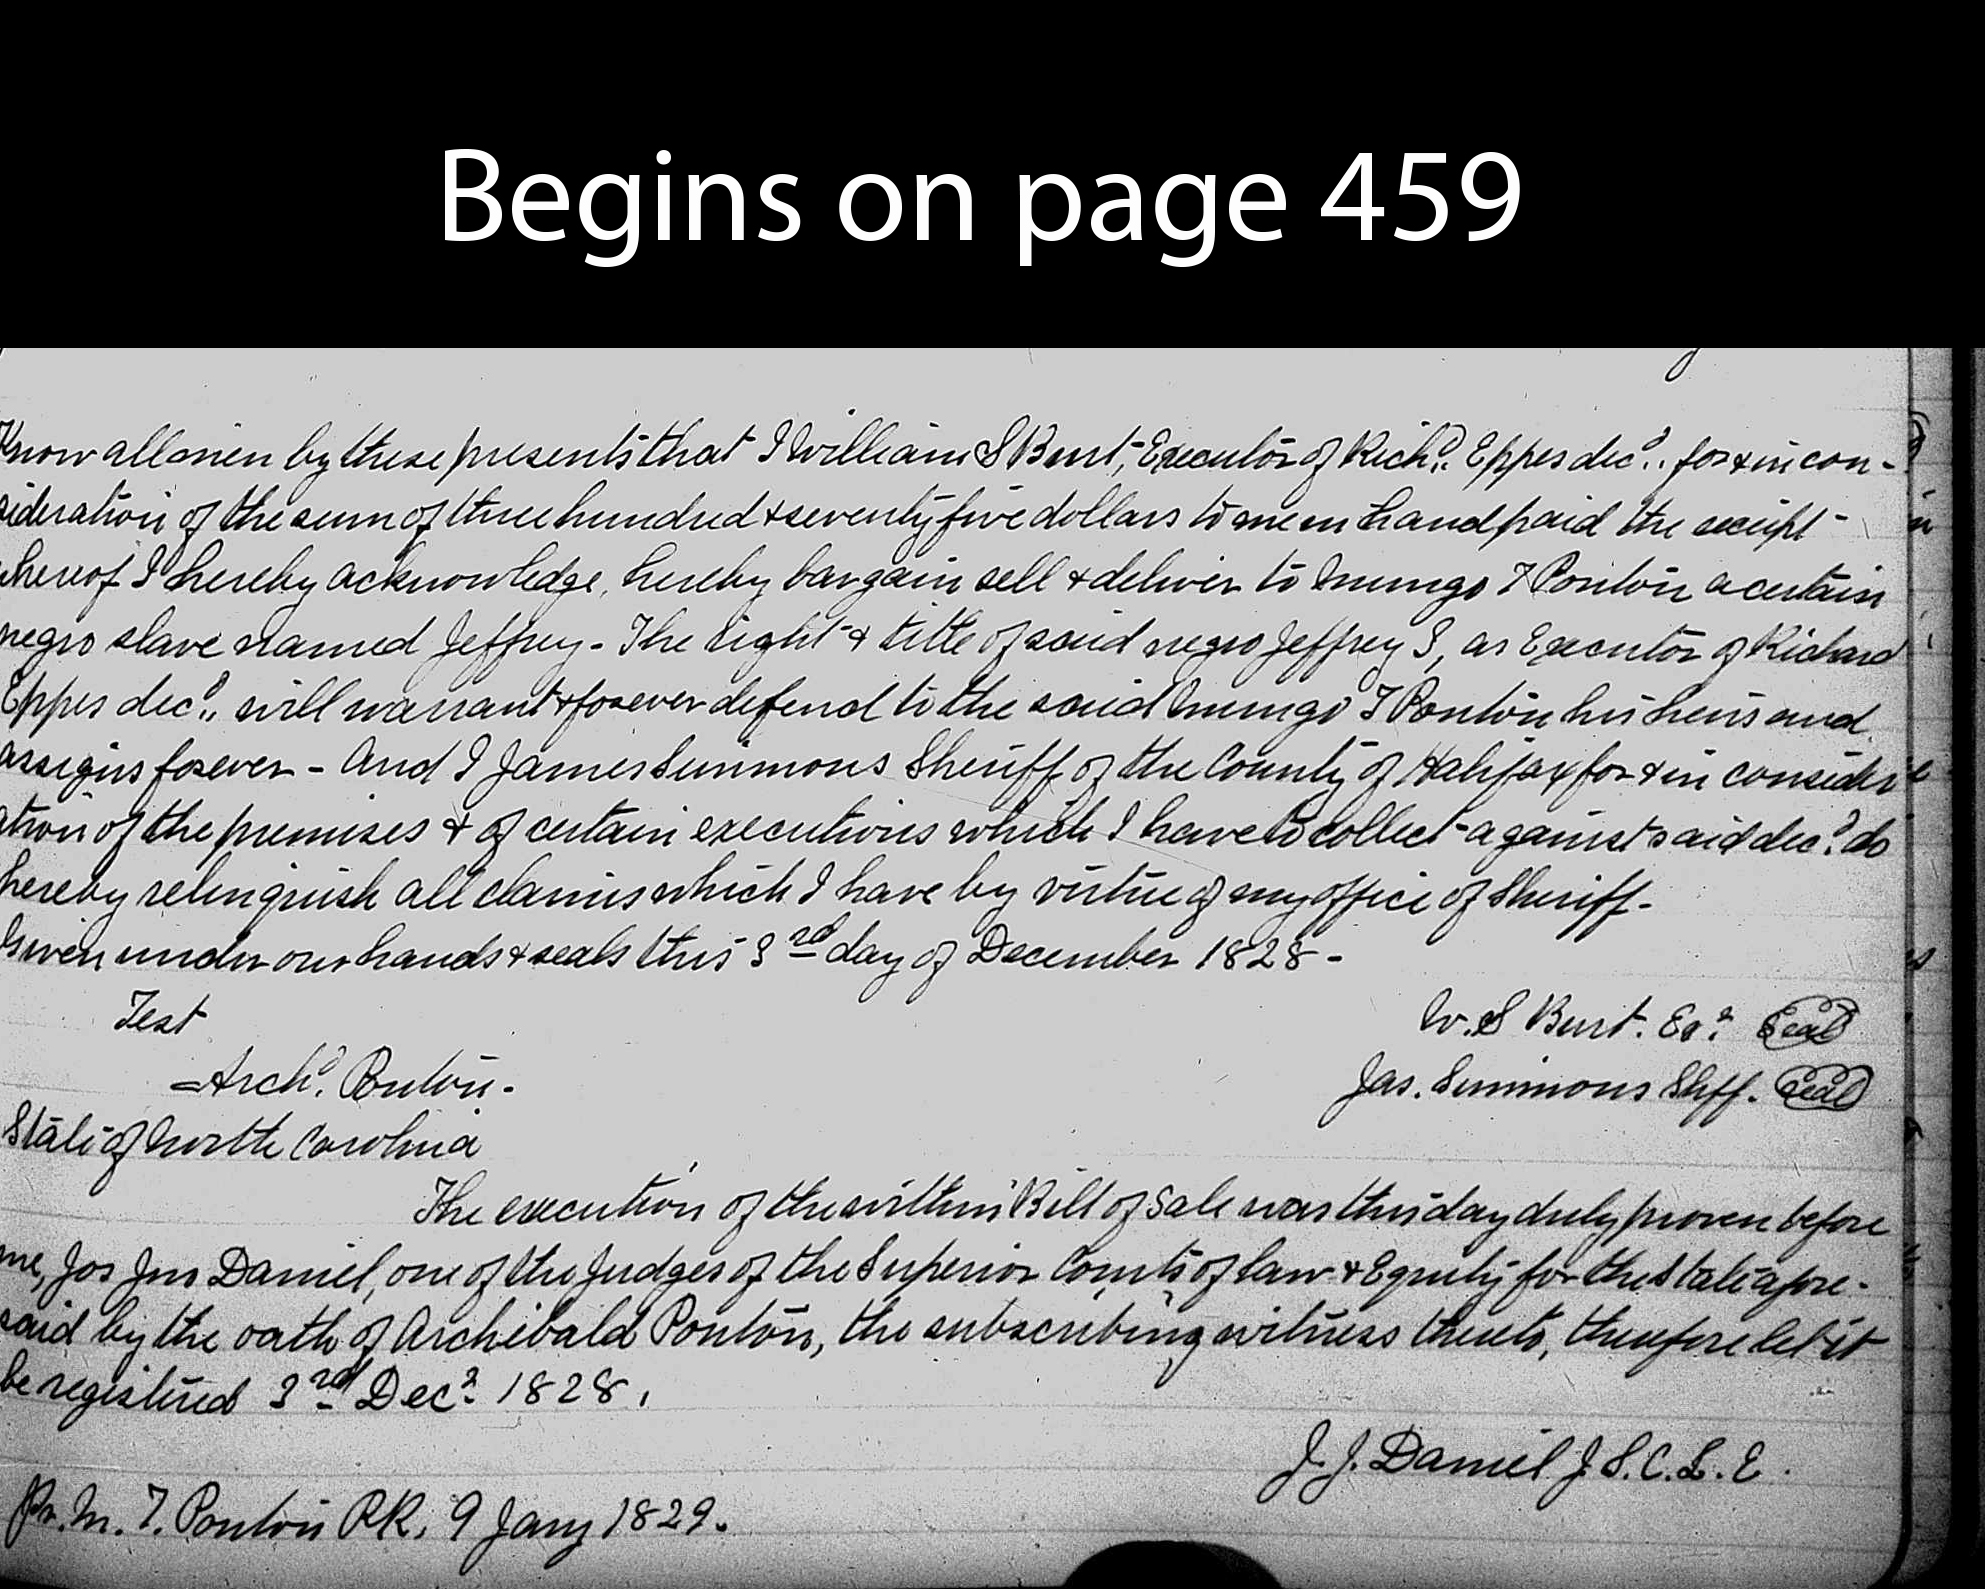 Begins on page 459
Know all men by these presents that I William S Burt, Executor of Richd. Eppes decd.. for & in con-
sideration of the sum of three hundred & seventy five dollars to me in hand paid the receipt-
whereof I hereby acknowledge, hereby bargain sell & deliver to Mungo T Ponton a certain
negro slave named Jeffrey - The right & title of said negro Jeffrey I, as Executor of Richard
Eppes decd., will warrant & forever defend to the said Mungo T Ponton his heirs and
assigns forever - And I James Simmons Sheriff of the County of Halifax for & in consider
ation of the premises & of certain executions which I have to collect - against said decd. do
hereby relinquish all claims which I have by virtue of my office of Sheriff-
Given under our hands & seals this 3rd day of December 1828-
Test
W. S Burt. Exr. Seal
Archd. Ponton-
Jas. Simmons Shff. Seal
State of North Carolina
The execution of the within Bill of Sale was this day duly proven before
me, Jos Jno Daniel, one of the Judges of the Superior Courts of law & Equity for the State afore-
said by the oath of Archibald Ponton, the subscribing witness thereto, therefore let it
be registered 3rd Decr. 1828.
J. J. Daniel J. S. C. L. E.
Pr. M. T. Ponton P.R. 9 Jany 1829.